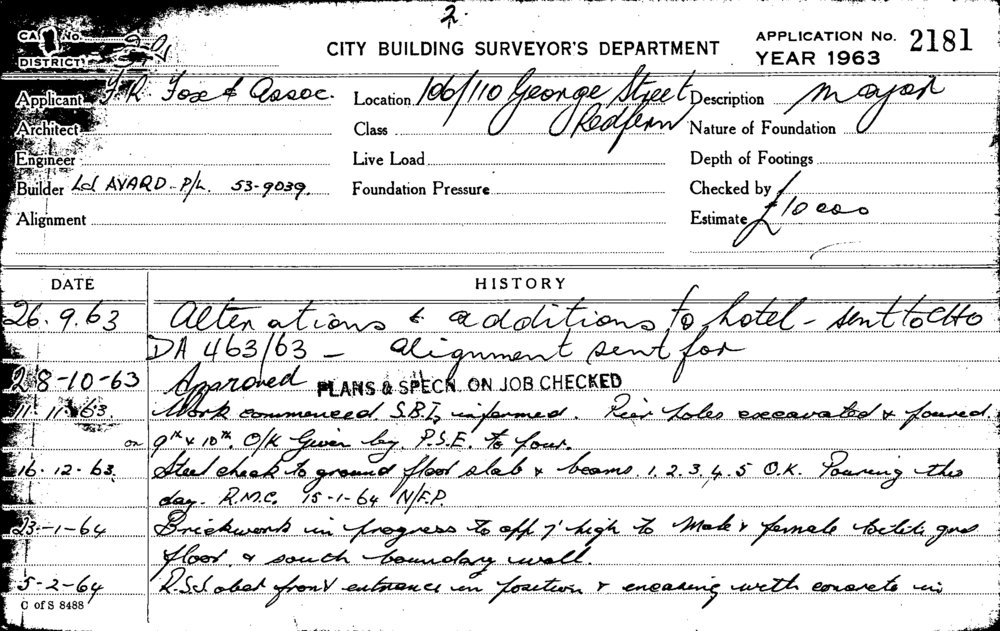 2.
CARD No.
DISTRICT
CITY BUILDING SURVEYOR'S DEPARTMENT
APPLICATION No. 2181
YEAR 1963
Applicant F. R. Fox & Assoc.
Location 106/110 George Street
Redfern
Description Major
Architect
Class
Nature of Foundation
Engineer
Live Load
Depth of Footings
Builder AVARD P/L. 53-9039.
Foundation Pressure
Checked by
Alignment
Estimate £10 000
DATE
HISTORY
26.9.63 Alterations & additions to hotel - sent to CHO
DA 463/63 - alignment sent for
28-10-63 Approved PLANS & SPECN. ON JOB CHECKED
11.11.63. Work commenced S.B.I. informed. Pier holes excavated & poured.
on 9th & 10th. O/K Given by. P.S.E. to pour.
16.12.63. Steel check to ground floor slab & beams. 1.2.3.4.5 O.K. Pouring this
day. R.M.C. 15-1-64 N/F.P.
23-1-64 Brickwork in progress to app 7' high to Male & female toilets grd
floor. & south boundary wall.
5-2-64 R.S.J. front entrance in position & encasing with concrete in
C of S 8488